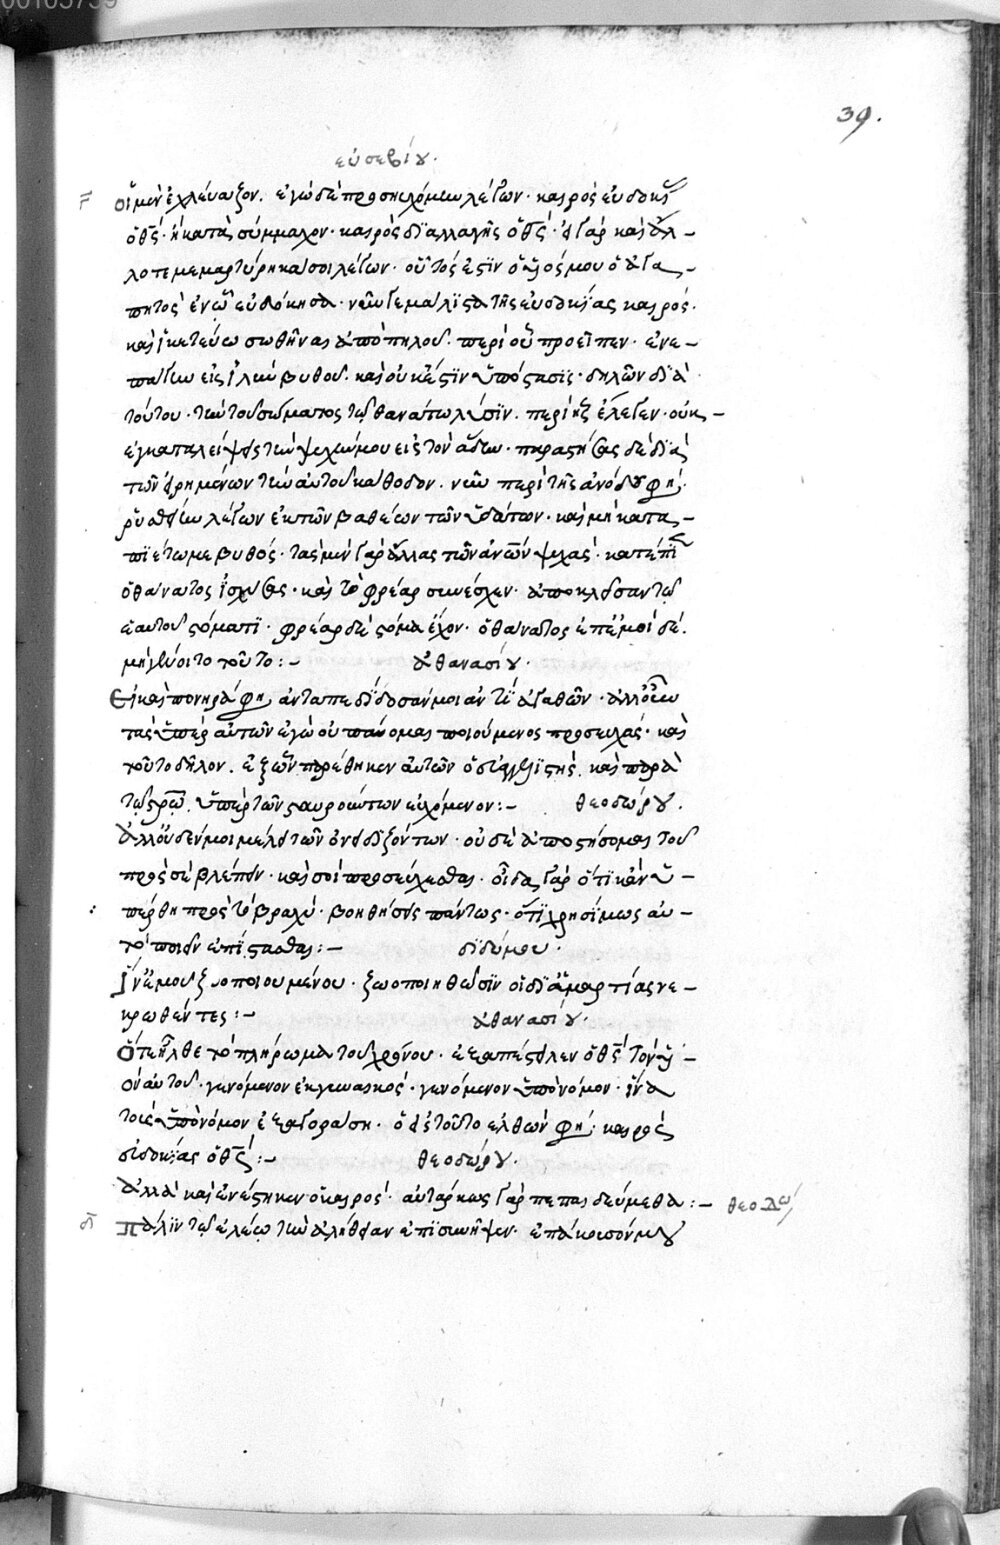 00105759
39.
εὐσεβίου.
οἱ μὲν ἐχλεύαζον. ἐγὼ δὲ προσηυχόμην λέγων· καιρὸς εὐδοκίας
ὁ θς· ἢ κατὰ σύμμαχον· καιρὸς διαλλαγῆς ὁ θς· εἰ γὰρ καὶ ἄλ –
λοτε μεμαρτύρηκας μοι λέγων· οὗτός ἐστιν ὁ υἱός μου ὁ ἀγα –
πητὸς ἐν ᾧ εὐδόκησα· νῦν γε μάλιστα τῆς εὐδοκίας καιρός.
καὶ ἱκετεύω σωθῆναι ἀπὸ πηλοῦ. περὶ οὗ προεῖπεν· ἐνε –
πάγην εἰς ἰλὺν βυθοῦ. καὶ οὐκ ἔστιν ὑπόστασις· δηλῶν διὰ
τούτου· τὴν τοῦ σώματος τῷ θανάτω λύσιν. περὶ ἧς ἔλεγεν· οὐκ –
ἐγκαταλείψεις τὴν ψυχήν μου εἰς τὸν ἅδην· παραστήσας δὲ διὰ
τῶν εἰρημένων τὴν αὐτοῦ κάθοδον. νῦν περὶ τῆς ἀνόδου φησί.
ῥυσθείην λέγων ἐκ τῶν βαθέων τῶν ὑδάτων. καὶ μὴ κατα –
πιέτω με βυθός· τὰς μὲν γὰρ ἄλλας τῶν ἀνων ψυχὰς· κατέπιεν
ὁ θάνατος ἰσχύσας· καὶ τὸ φρέαρ συνέσχεν· ἀποκλεῖσαν τῷ
ἑαυτοῦ στόματι· φρέαρ δὲ στόμα ἔχον· ὁ θάνατος ἐπ' ἐμοὶ δέ.
μὴ γένοιτο τοῦτο :– ἀθανασίου.
Εἰ καὶ πονηρά φησι ἀνταπεδίδοσάν μοι ἀντὶ ἀγαθῶν· ἀλλ' οὖν
τὰς ὑπὲρ αὐτῶν ἐγὼ οὐ παύομαι ποιούμενος προσευχάς· καὶ
τοῦτο δῆλον. ἐξ ὧν παρέθηκεν αὐτῶν ὁ εὐαγγελιστής. καὶ παρὰ
τῷ στρω. ὑπὲρ τῶν σταυρούντων εὐχόμενον :– θεοδώρου.
Ἀλλ' οὐδέν μοι μέλει τῶν ὀνειδιζόντων· οὐδὲ ἀποστήσομαι τοῦ
πρὸς σὲ βλέπειν· καὶ σοὶ προσεύχεσθαι. οἶδα γὰρ ὅτι κἂν ὑ –
περθῇ πρὸς τὸ βραχύ· βοηθήσεις πάντως. ὅτι χρησίμως αὐ –
τὸ ποιεῖν ἐπίστασθαι :– διδύμου.
Ἵν' ἐμοῦ ζωοποιουμένου. ζωοποιηθῶσιν οἱ δι' ἁμαρτίας νε –
κρωθέντες :– ἀθανασίου.
Ὅτε ἦλθε τὸ πλήρωμα τοῦ χρόνου. ἐξαπέστειλεν ὁ θς τὸν υἱ –
ὸν αὐτοῦ. γενόμενον ἐκ γυναικός. γενόμενον ὑπὸ νόμον· ἵνα
τοὺς ὑπὸ νόμον ἐξαγοράσῃ. ὁ εἰς τοῦτο ἐλθών φησί. καιρὸς
εὐδοκίας ὁ θς :– θεοδώρου.
Ἀλλὰ καὶ ἐνέστηκεν ὁ καιρός· αὐτάρκως γὰρ πεπαιδεύμεθα :– θεοδω
Πάλιν τῷ ἐλέῳ τὴν ἀλήθειαν ἐπισυνῆψεν. ἐπάκουσόν μου